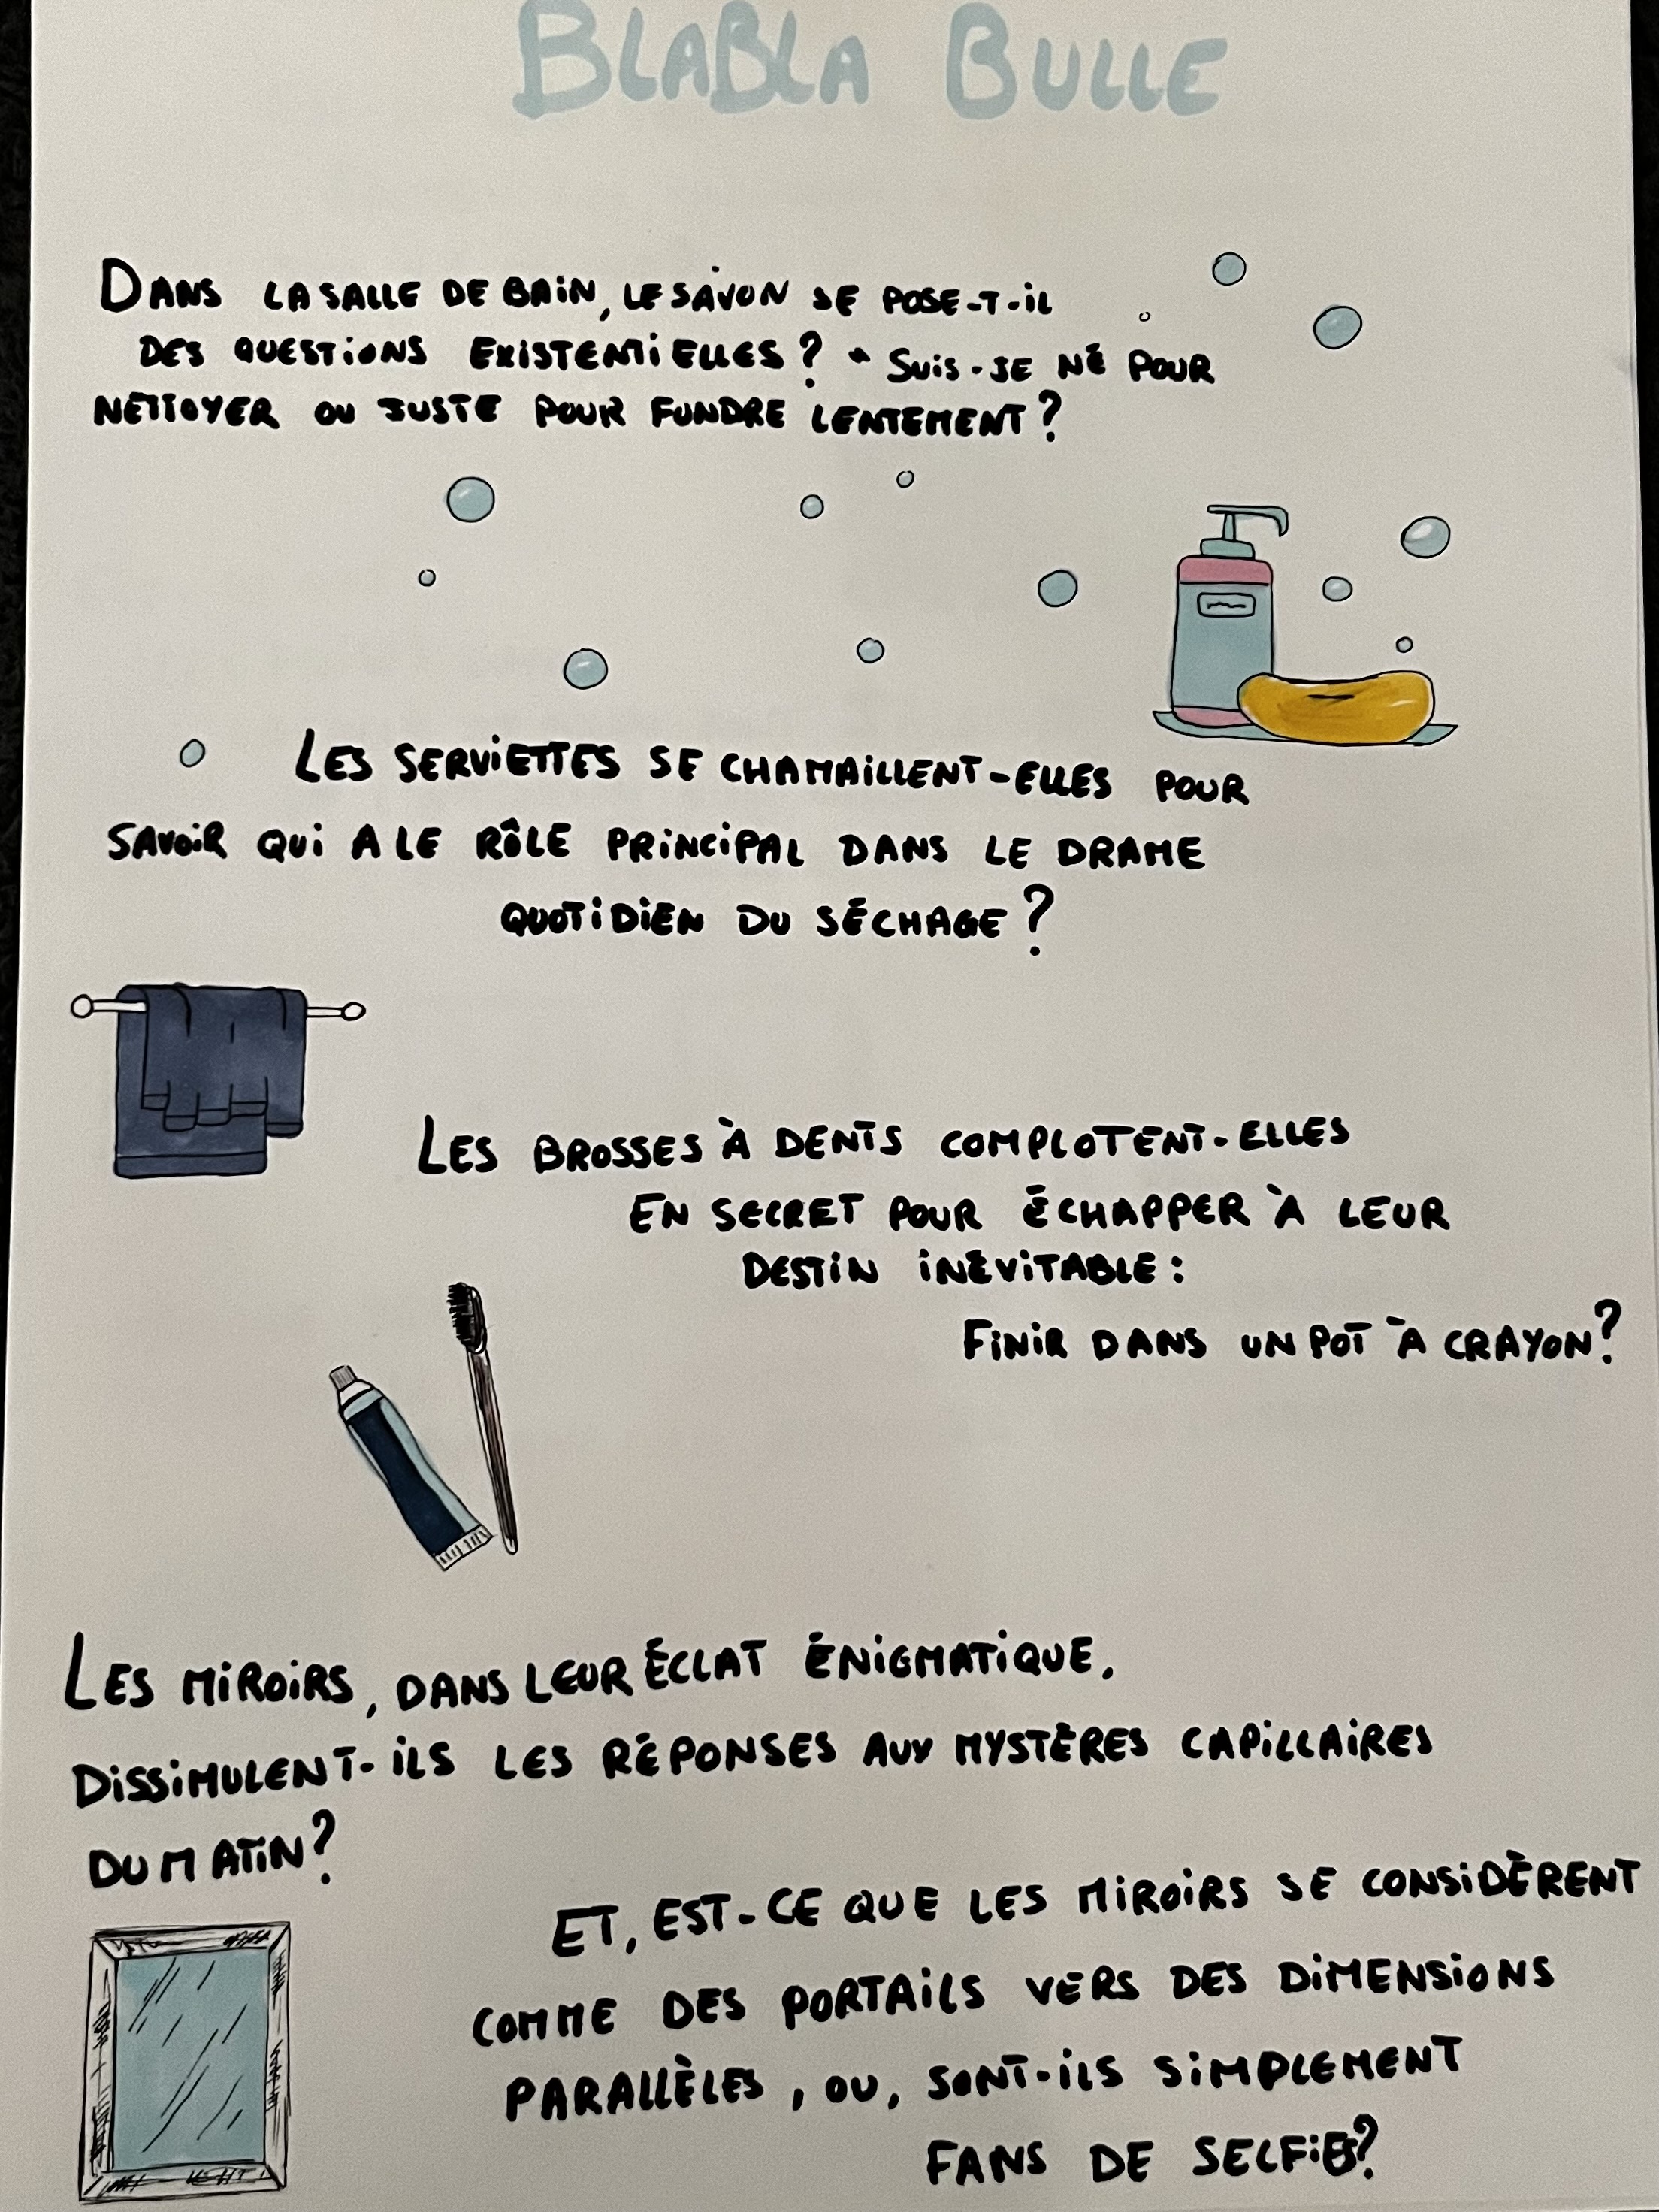 BLABLA BULLE
DANS LA SALLE DE BAIN, LE SAVON SE POSE-T-IL
DES QUESTIONS EXISTENTIELLES? " SUIS-JE NÉ POUR
NETTOYER OU JUSTE POUR FONDRE LENTEMENT?
LES SERVIETTES SE CHAMAILLENT-ELLES POUR
SAVOIR QUI A LE RÔLE PRINCIPAL DANS LE DRAME
QUOTIDIEN DU SÉCHAGE?
LES BROSSES À DENTS COMPLOTENT-ELLES
EN SECRET POUR ÉCHAPPER À LEUR
DESTIN INÉVITABLE:
FINIR DANS UN POT À CRAYON?
LES MIROIRS, DANS LEUR ÉCLAT ÉNIGMATIQUE,
DISSIMULENT-ILS LES RÉPONSES AUX MYSTÈRES CAPILLAIRES
DU MATIN?
ET, EST-CE QUE LES MIROIRS SE CONSIDÈRENT
COMME DES PORTAILS VERS DES DIMENSIONS
PARALLÈLES, OU, SONT-ILS SIMPLEMENT
FANS DE SELFIES?